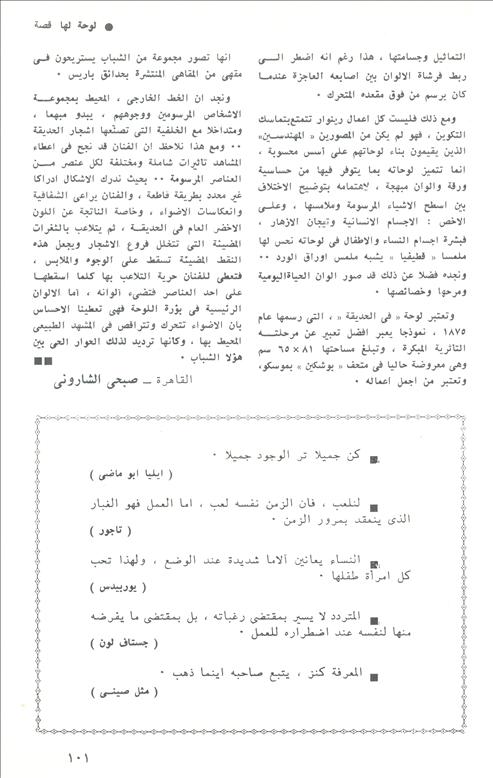 ● لوحة لها قصة
التماثيل وجسامتها ، هذا رغم انه اضطر الـى
ربط فرشاة الالوان بين اصابعه العاجزة عندمـا
كان يرسم من فوق مقعده المتحرك ٠
ومع ذلك فليست كل اعمال رينوار تتمتع بتماسك
التكوين ، فهو لم يكن من المصورين « المهندسين»
الذين يقيمون بناء لوحاتهم على أسس محسوبة ،
انما تتميز لوحاته بما يتوفر فيها من حساسية
ورقة والوان مبهجة ، لاهتمامه بتوضيح الاختلاف
بين اسطح الاشياء المرسومة وملامسها ، وعلـى
الاخص : الاجسام الانسانية وتيجان الازهار ،
فبشرة اجسام النساء والاطفال فى لوحاته نحس لها
ملمسا « قطيفيا » يشبه ملمس اوراق الورد ٠٠
ونجده فضلا عن ذلك قد صور الوان الحياة اليومية
ومرحها وخصائصها ٠
وتعتبر لوحة « فى الحديقة » ، التى رسمها عام
١٨٧٥ ، نموذجا يعبر افضل تعبير عن مرحلتـه
التأثرية المبكرة ، وتبلغ مساحتها ٨١ × ٦٥ سم
وهى معروضة حاليا فى متحف « بوشكين » بموسكو،
وتعتبر من اجمل اعماله ٠
انها تصور مجموعة من الشباب يستريحون فـى
مقهى من المقاهى المنتشرة بحدائق باريس ٠
ونجد ان الخط الخارجى ، المحيط بمجموعـة
الاشخاص المرسومين ووجوههم ، يبدو مبهما ،
ومتداخلا مع الخلفية التى تصنعها اشجار الحديقة
٠٠ ومع هذا نلاحظ ان الفنان قد نجح فى اعطاء
المشاهد تأثيرات شاملة ومختلفة لكل عنصر مـن
العناصر المرسومة ٠٠ بحيث ندرك الاشكال ادراكا
غير محدد بطريقة قاطعة ، والفنان يراعى الشفافية
وانعكاسات الاضواء ، وخاصة الناتجة عن اللون
الاخضر العام فى الحديقـة ، ثم يتلاعب بالثغرات
المضيئة التى تتخلل فروع الاشجار ويجعل هذه
النقط المضيئة تسقط على الوجوه والملابس ،
فتعطى للفنان حرية التلاعب بها كلما اسقطهـا
على احد العناصر فتضىء ألوانه ، أما الالوان
الرئيسية فى بؤرة اللوحة فهى تعطينا الاحساس
بان الاضواء تتحرك وتتراقص فى المشهد الطبيعى
المحيط بها ، وكأنها ترديد لذلك الحوار الحى بين
هؤلا الشباب ٠ ■■
القاهرة ــ صبحى الشارونى
■ كن جميلا تر الوجود جميلا ٠
( ايليا ابو ماضى )
■ لنلعب ، فان الزمن نفسه لعب ، اما العمل فهو الغبار
الذى ينعقد بمرور الزمن ٠
( تاجور )
■ النساء يعانين آلاما شديدة عند الوضع ، ولهذا تحب
كل امرأة طفلها ٠
( يوربيدس )
■ المتردد لا يسير بمقتضى رغباته ، بل بمقتضى ما يفرضه
منها لنفسه عند اضطراره للعمل ٠
( جستاف لون )
■ المعرفة كنز ، يتبع صاحبه اينما ذهب ٠
( مثل صينـى )
١٠١